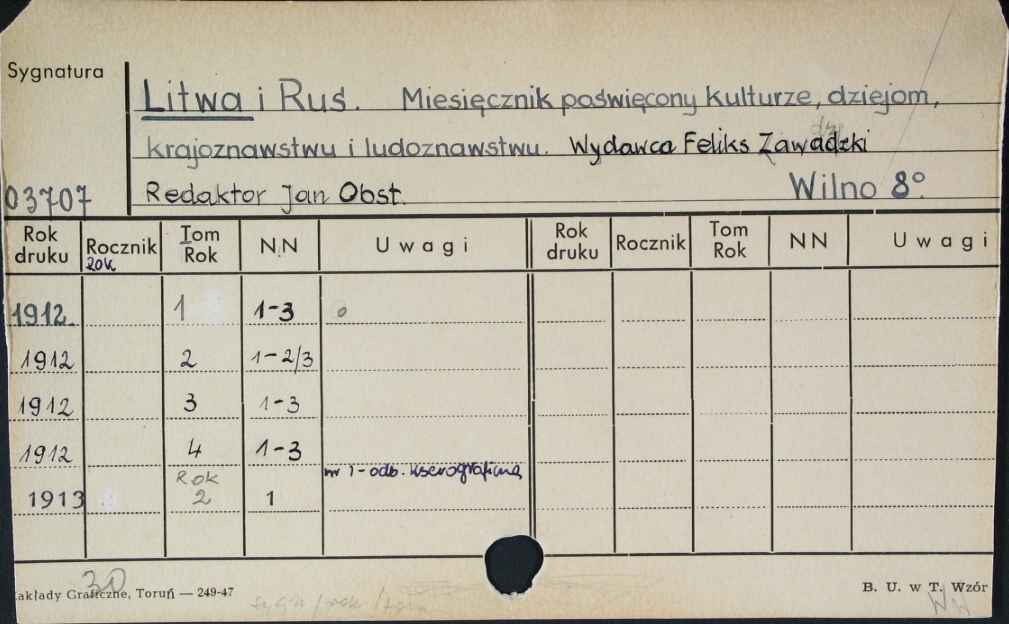 Sygnatura
Litwa i Ruś. Miesięcznik poświęcony kulturze, dziejom,
krajoznawstwu i ludoznawstwu. Wydawca Feliks Zawadzki
03707 Redaktor Jan Obst. Wilno 8°.
Rok druku Rocznik Tom Rok N.N Uwagi Rok druku Rocznik Tom Rok NN Uwagi
Rok
1912 1 1-3
1912 2 1-2/3
1912 3 1-3
1912 4 1-3
nr 1-odb. kserograficzna
Rok
1913 2 1
30
akłady Graficzne, Toruń — 249-47 B. U. w T. Wzór